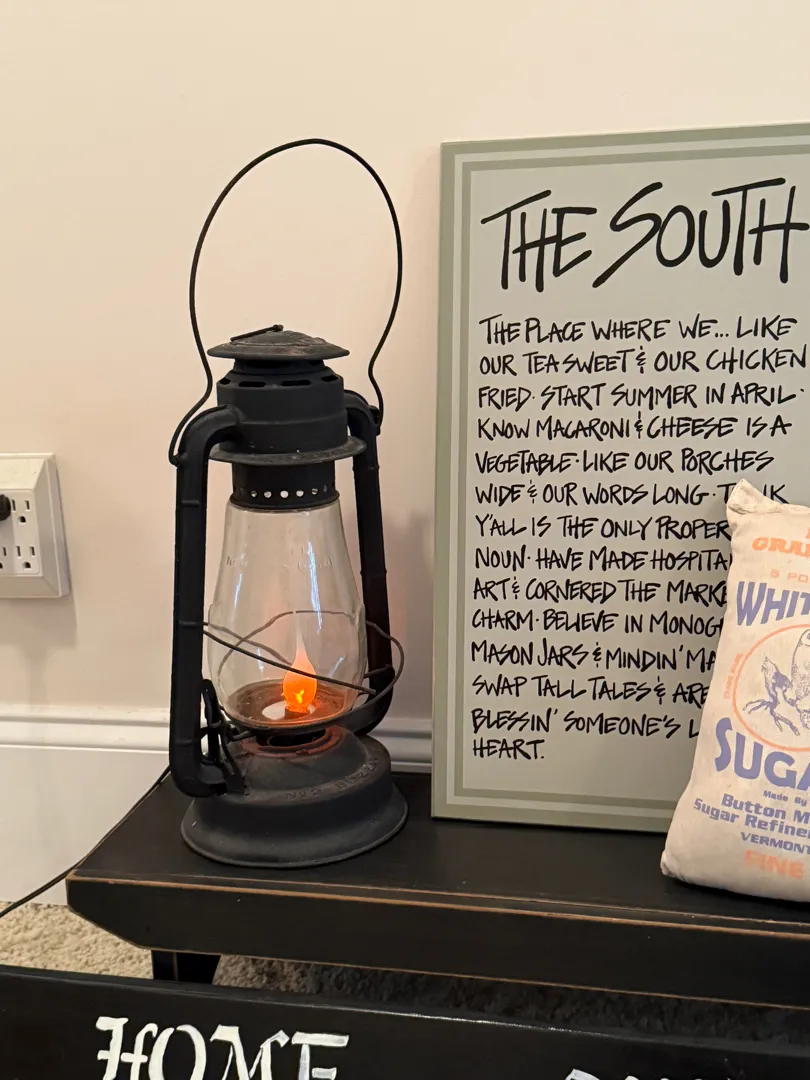 THE SOUTH
THE PLACE WHERE WE... LIKE
OUR TEA SWEET & OUR CHICKEN
FRIED · START SUMMER IN APRIL ·
KNOW MACARONI & CHEESE IS A
VEGETABLE · LIKE OUR PORCHES
WIDE & OUR WORDS LONG ·
Y'ALL IS THE ONLY PROPER
NOUN · HAVE MADE
ART & CORNERED THE
CHARM · BELIEVE IN
MASON JARS & MINDIN'
SWAP TALL TALES & ARE
BLESSIN' SOMEONE'S
HEART.
SUGA
Made By
Button M
VERMONT
FINE
HOME